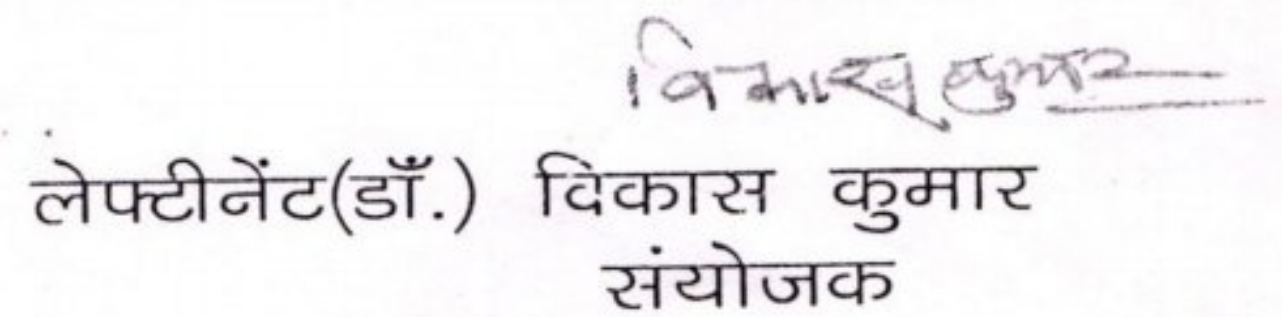 विकास कुमार
लेफ्टीनेंट(डॉ.) विकास कुमार
संयोजक